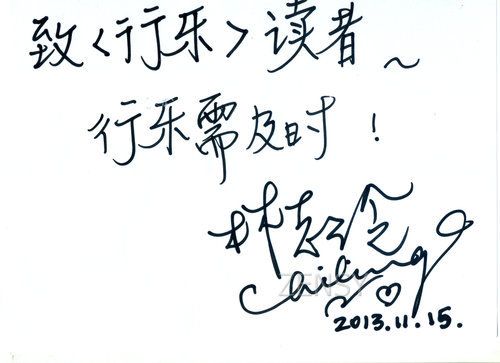 致<行乐>读者~
行乐需及时!
林志玲
Chiling
ZENSY
2013.11.15.